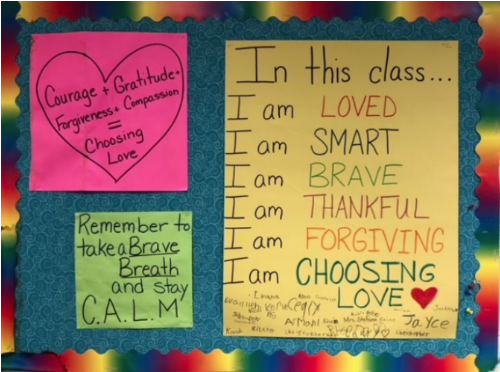 Courage + Gratitude +
Forgiveness + Compassion
=
Choosing
Love
Remember to
take a Brave
Breath
and stay
C.A.L.M
In this class...
I am LOVED
I am SMART
I am BRAVE
I am THANKFUL
I am FORGIVING
I am CHOOSING
LOVE
Jayce